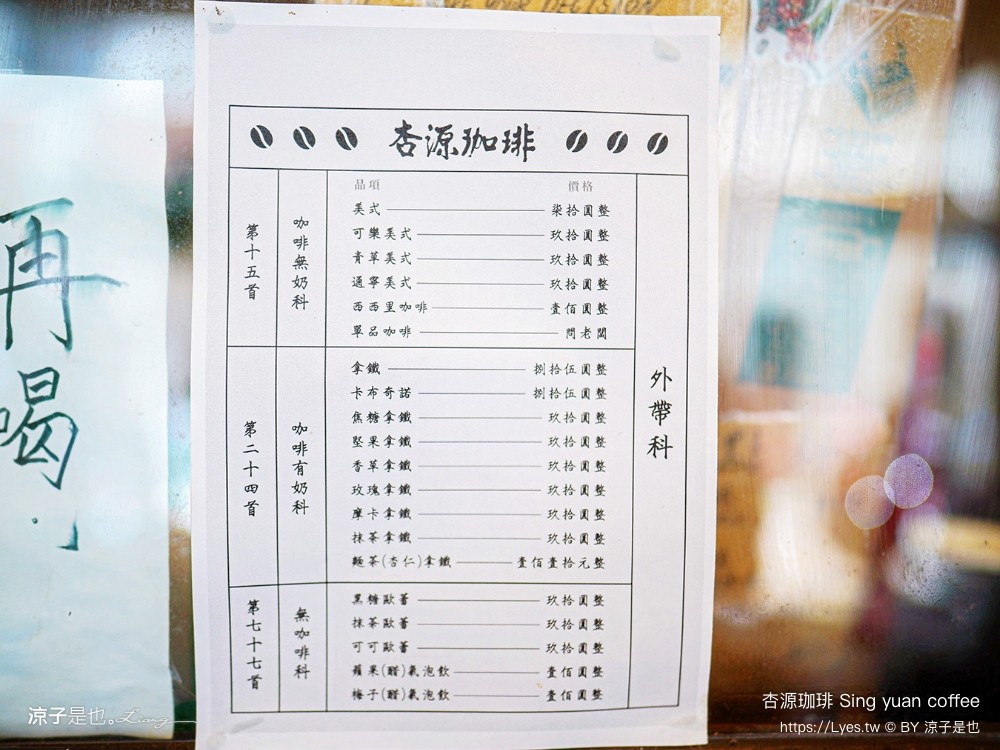 YOUR DECISION
再喝
杏源珈琲
品項 價格
第十五首
咖啡無奶科
美式 柒拾圓整
可樂美式 玖拾圓整
青草美式 玖拾圓整
通寧美式 玖拾圓整
西西里咖啡 壹佰圓整
單品咖啡 問老闆
第二十四首
咖啡有奶科
拿鐵 捌拾伍圓整
卡布奇諾 捌拾伍圓整
焦糖拿鐵 玖拾圓整
堅果拿鐵 玖拾圓整
香草拿鐵 玖拾圓整
玫瑰拿鐵 玖拾圓整
摩卡拿鐵 玖拾圓整
抹茶拿鐵 玖拾圓整
麵茶(杏仁)拿鐵 壹佰壹拾元整
第七十七首
無咖啡科
黑糖歐蕾 玖拾圓整
抹茶歐蕾 玖拾圓整
可可歐蕾 玖拾圓整
蘋果(醋)氣泡飲 壹佰圓整
梅子(醋)氣泡飲 壹佰圓整
外帶科
涼子是也。Liang
杏源珈琲 Sing yuan coffee
https://Lyes.tw © BY 涼子是也